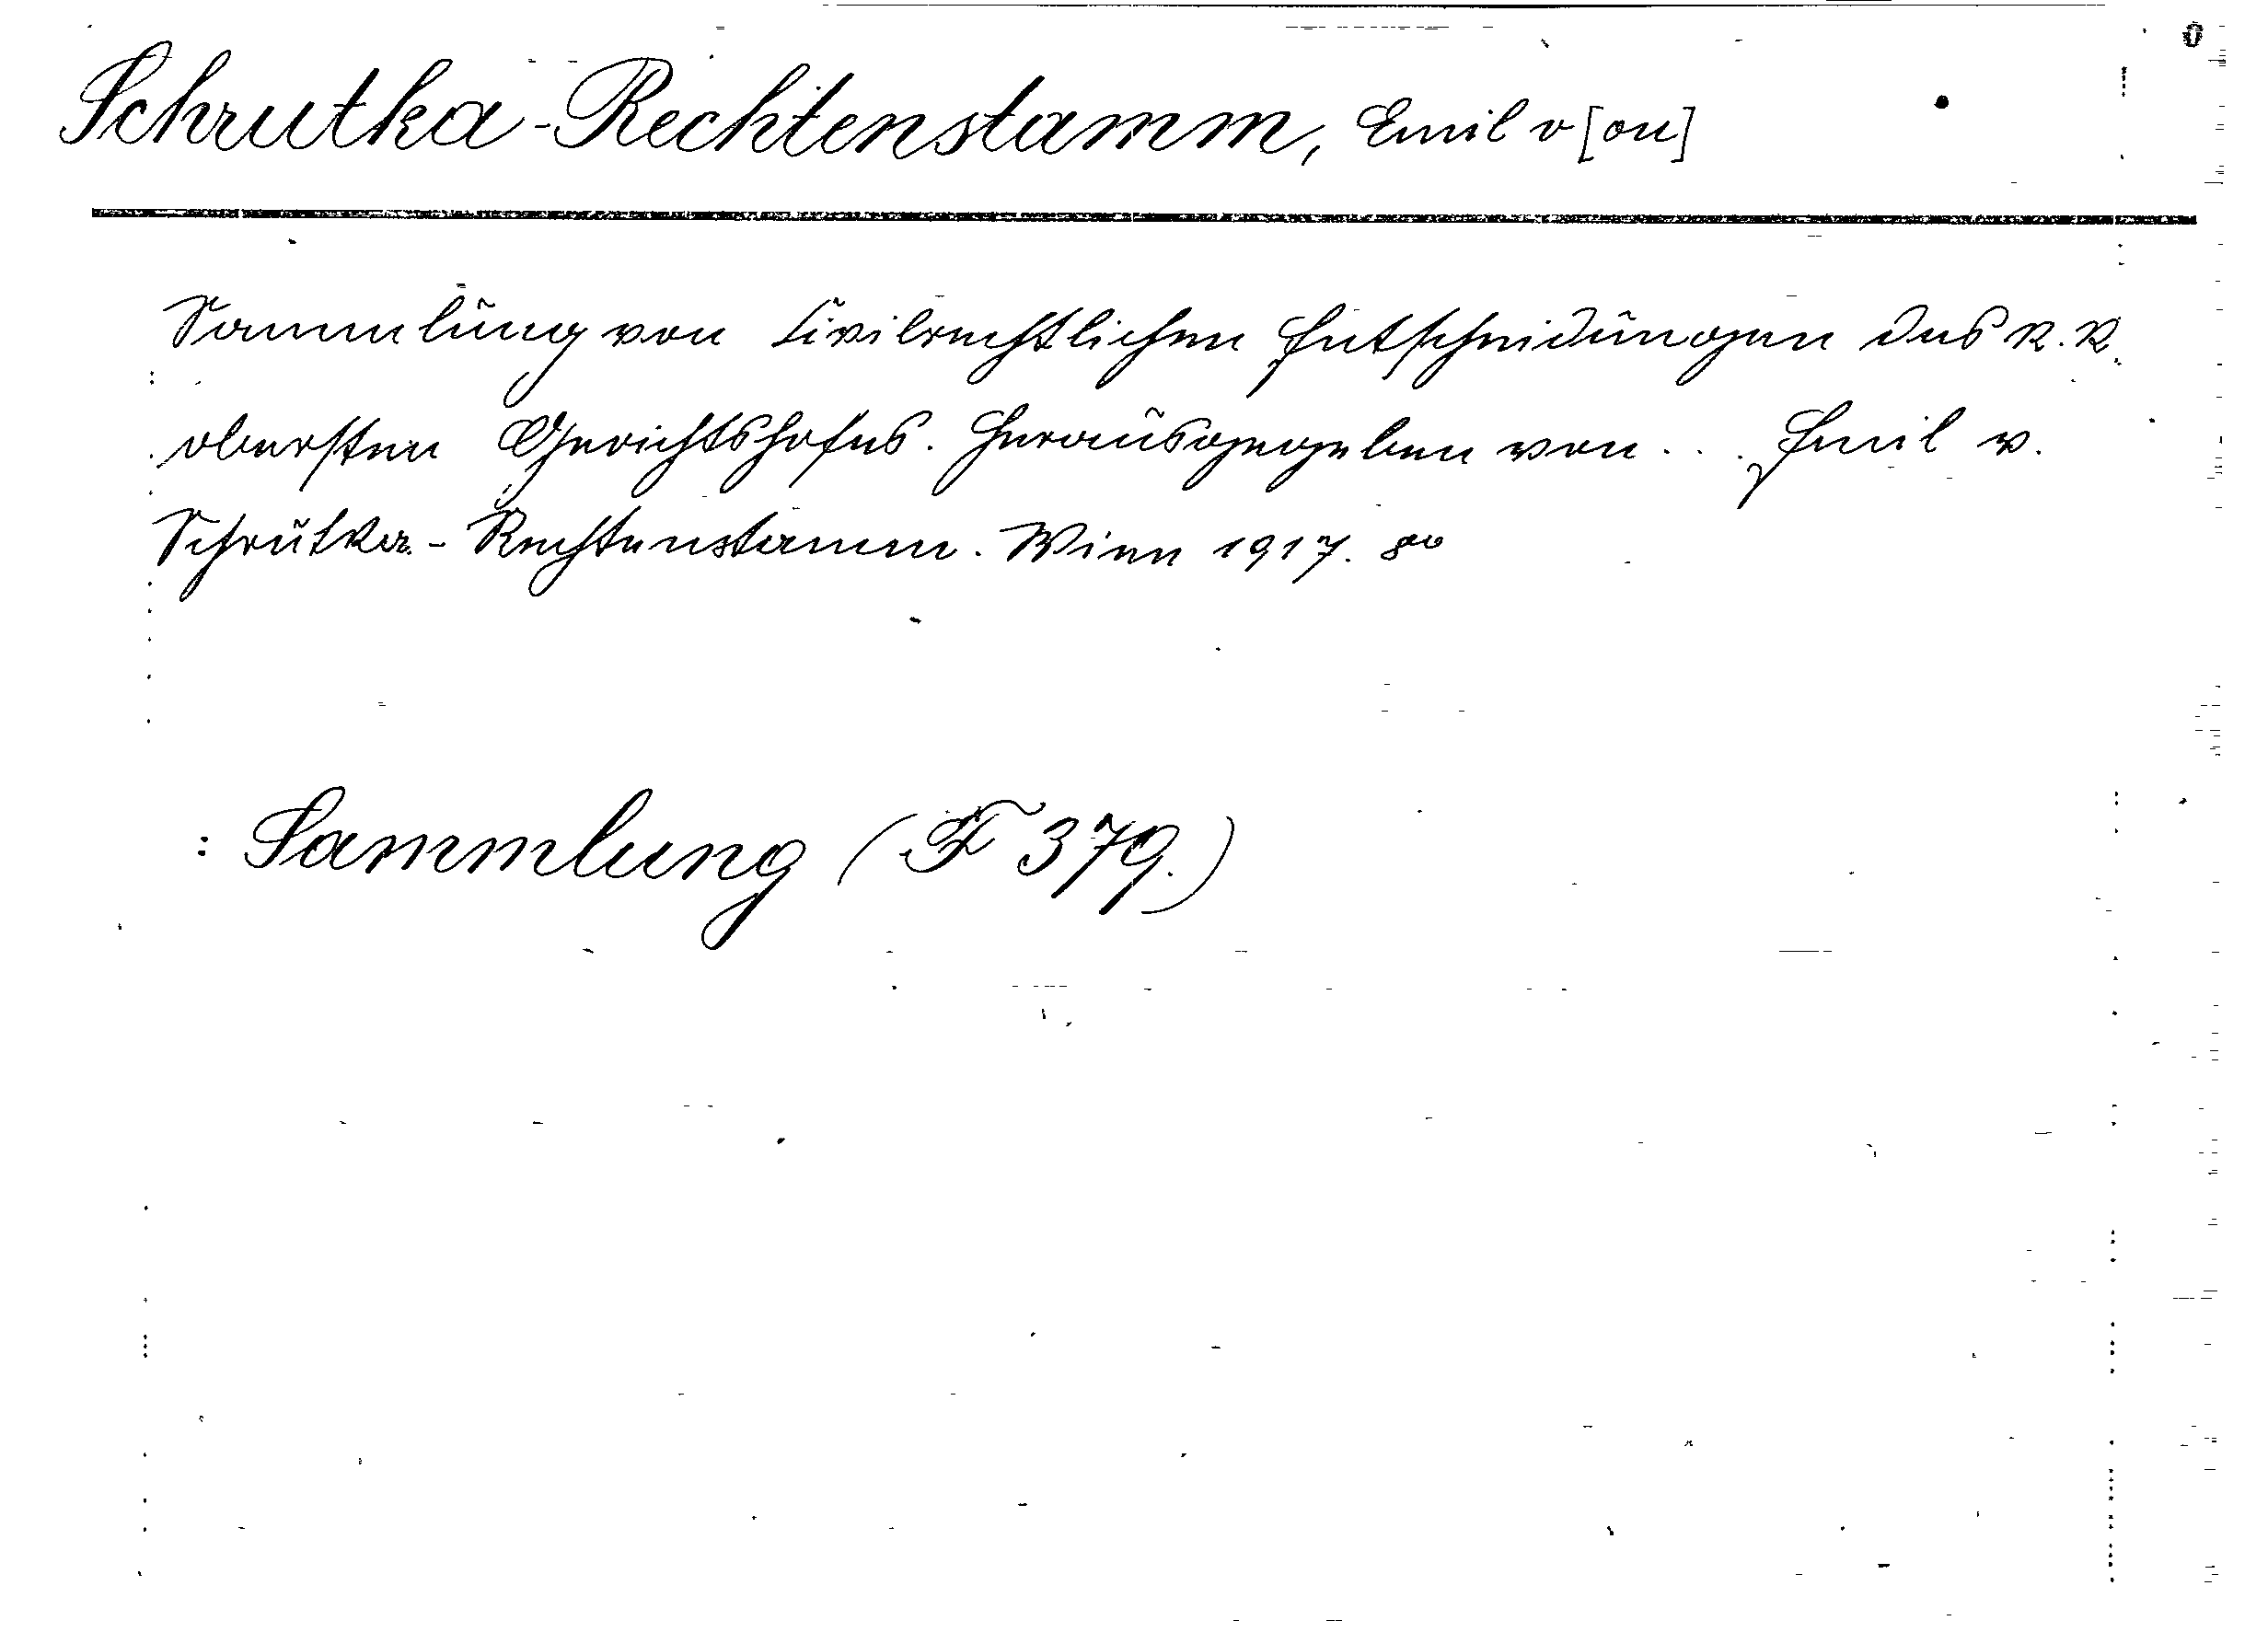 Schrutka-Rechtenstamm, Emil v[on]
Sammlung von Civilrechtlichen Entscheidungen des k. k.
obersten Gerichtshofes. Herausgegeben von ... Emil v.
Schrutka-Rechtenstamm. Wien 1917. 8vo
: Sammlung (F 379.)